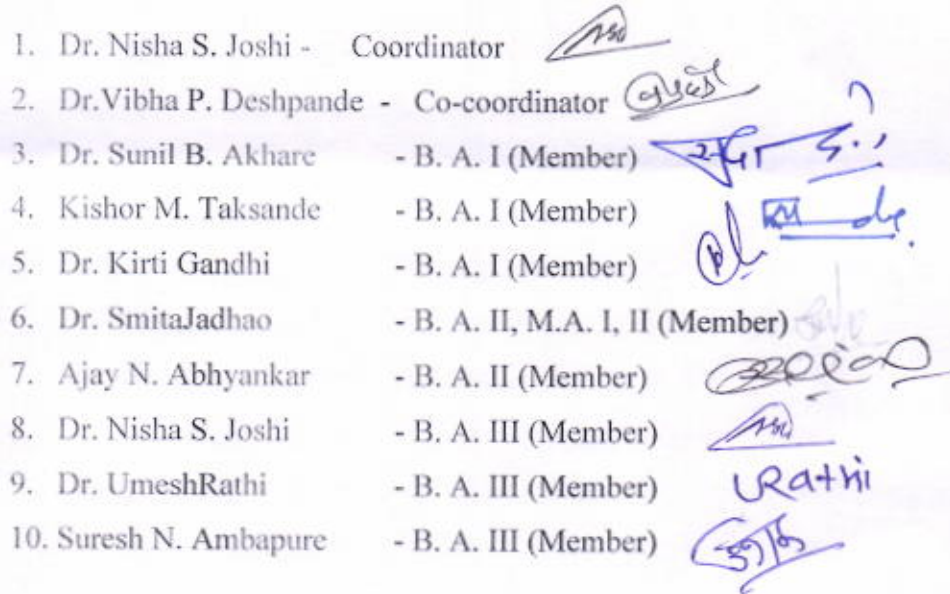 1. Dr. Nisha S. Joshi - Coordinator
2. Dr.Vibha P. Deshpande - Co-coordinator
3. Dr. Sunil B. Akhare - B. A. I (Member)
4. Kishor M. Taksande - B. A. I (Member)
5. Dr. Kirti Gandhi - B. A. I (Member)
6. Dr. SmitaJadhao - B. A. II, M.A. I, II (Member)
7. Ajay N. Abhyankar - B. A. II (Member)
8. Dr. Nisha S. Joshi - B. A. III (Member)
9. Dr. UmeshRathi - B. A. III (Member) URathi
10. Suresh N. Ambapure - B. A. III (Member)